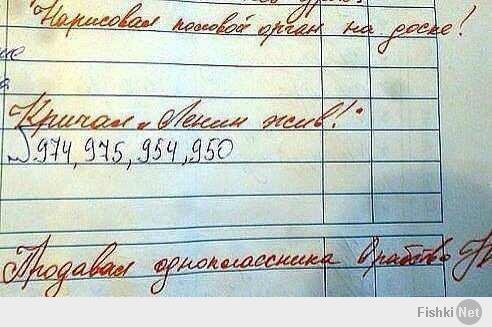 Нарисовал половой орган на доске!
Кричал „Ленин жив!"
974, 975, 954, 950
Продавал одноклассника в рабство
Fishki.Net